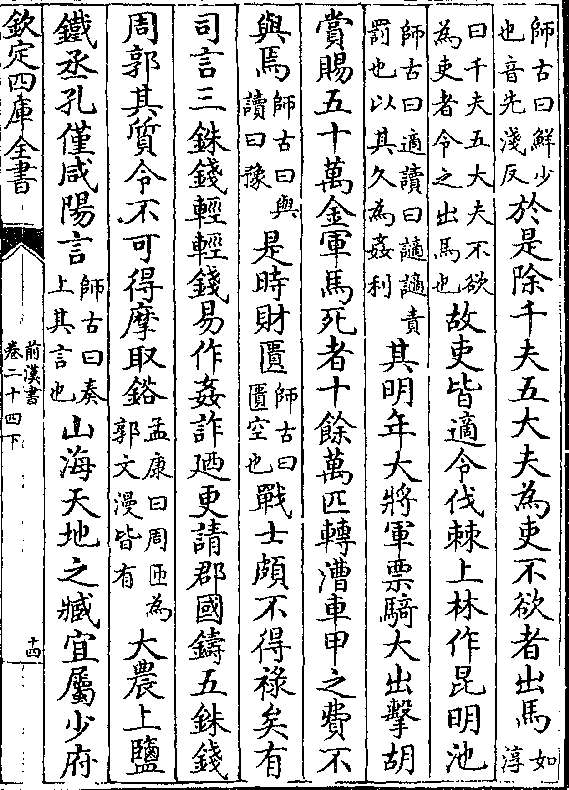 師古曰鮮少
也音先淺反
於是除千夫五大夫為吏不欲者出馬
如
淳
曰千夫五大夫不欲
為吏者令之出馬也
故吏皆適令伐棘上林作昆明池
師古曰適讀曰讁讁責
罰也以其久為姦利
其明年大將軍票騎大出擊胡
賞賜五十萬金軍馬死者十餘萬匹轉漕車甲之費不
與焉
師古曰與
讀曰豫
是時財匱
師古曰
匱空也
戰士頗不得祿矣有
司言三銖錢輕輕錢易作姦詐廼更請郡國鑄五銖錢
周郭其質令不可得摩取鋊
孟康曰周匝為
郭文漫皆有
大農上鹽
鐵丞孔僅咸陽言
師古曰奏
上其言也
山海天地之臧宜屬少府
欽定四庫全書
前漢書
卷二十四下
十四